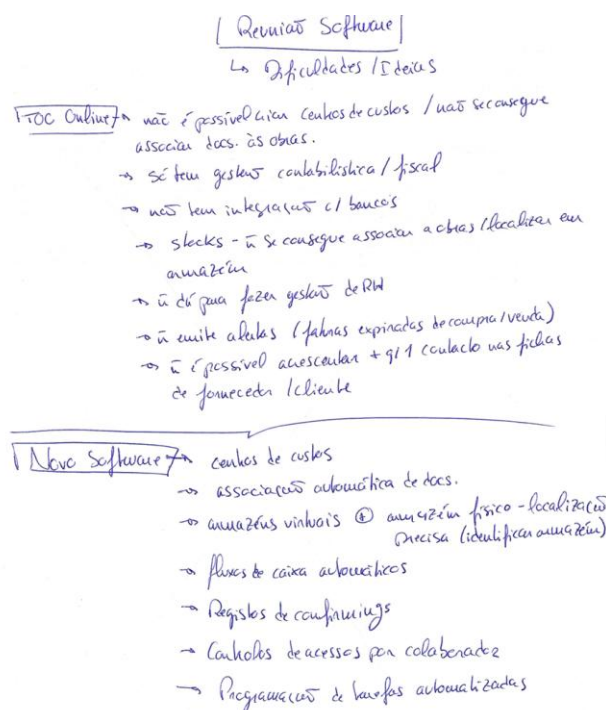 Reunião Software
↳ Dificuldades / Ideias
TOC Online → não é possível criar centros de custos / não se consegue
associar docs. às obras.
→ só tem gestão contabilística / fiscal
→ não tem integração c/ bancos
→ stocks - ñ se consegue associar a obras / localizar em
armazém
→ ñ dá para fazer gestão de RH
→ ñ emite alertas (faturas expiradas de compra/venda)
→ ñ é possível acrescentar + q/ 1 contacto nas fichas
de fornecedor / cliente
Novo Software → centros de custos
→ associação automática de docs.
→ armazéns virtuais ⊕ armazém físico - localização
precisa (identificar armazém)
→ fluxos de caixa automáticos
→ Registos de confirmings
→ Controlos de acessos por colaborador
→ Programação de tarefas automatizadas